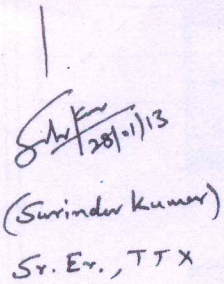 28/01/13
(Surinder Kumar)
Sr. Er., TTX